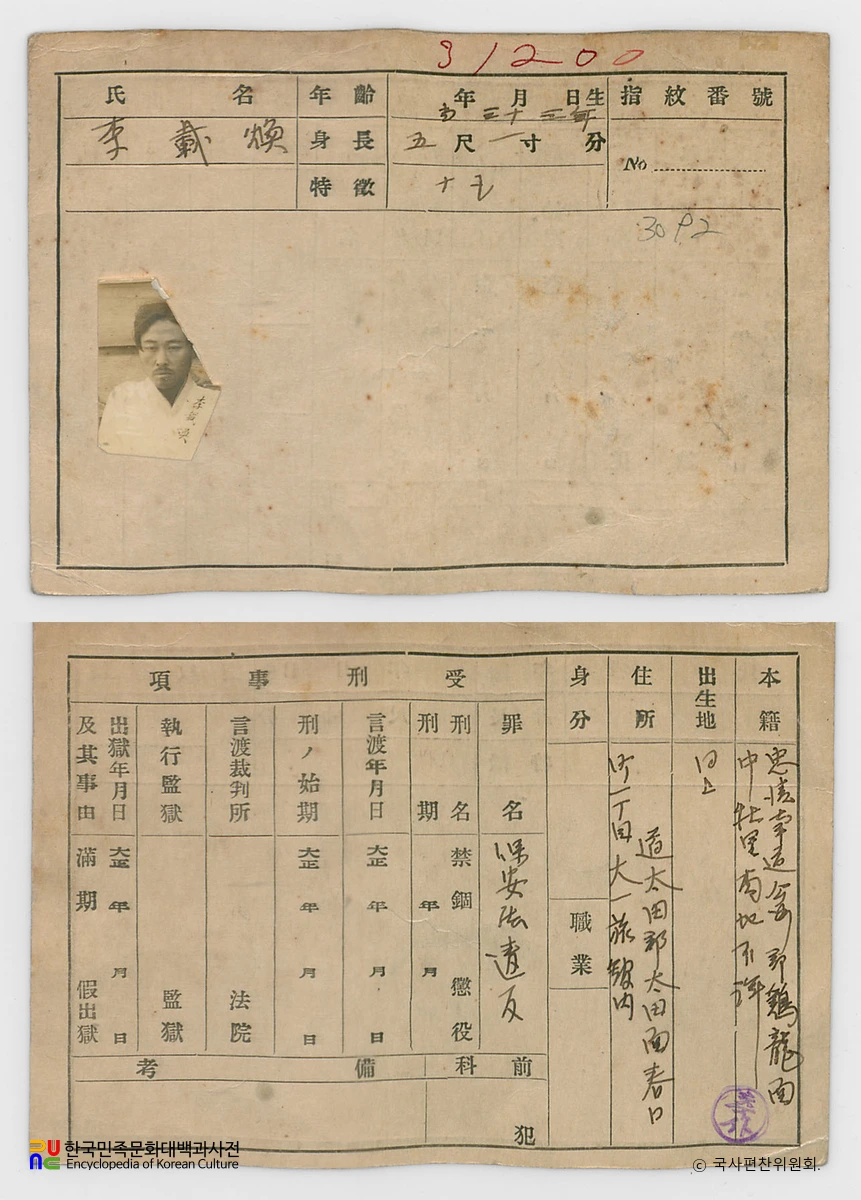 31200
氏名 年齡 年月日生 指紋番號
李載煥 三十三年
身長 五尺一寸分 No
特徵 十五
3092
李載煥
本籍 忠淸南道公州郡鷄龍面
中壯里番地不詳
出生地 同上
住所 道太田郡太田面春日
町一丁目大一旅館內
身分 職業
受刑事項
罪名 保安法違反
刑名 禁錮 懲役
刑期 年月
言渡年月日 大正年月日
刑ノ始期 大正年月日
言渡裁判所 法院
執行監獄 監獄
出獄年月日 大正年月日
及其事由 滿期 假出獄
前科 備考
犯
한국민족문화대백과사전
Encyclopedia of Korean Culture
© 국사편찬위원회.